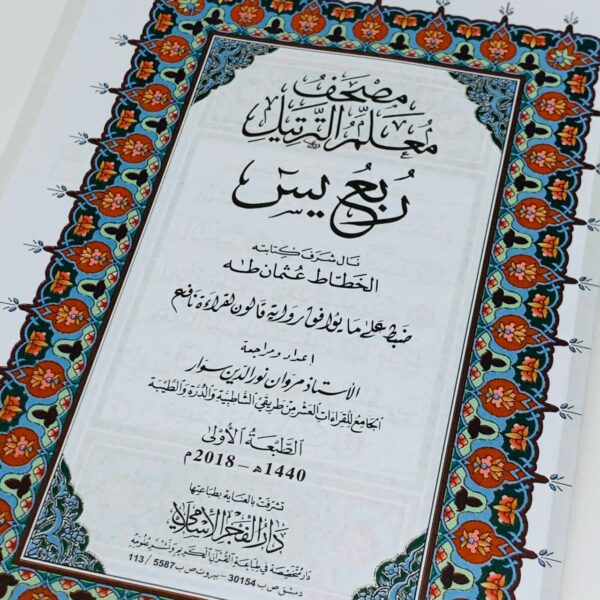 مصحف
معلم الترتيل
ربع يس
نال شرف كتابته
الخطاط عثمان طه
ضبط على ما يوافق رواية قالون لقراءة نافع
إعداد ومراجعة
الأستاذ مروان نور الدين سوار
الجامع للقراءات العشر من طريقي الشاطبية والدرة والطيبة
الطبعة الأولى
1440هـ - 2018م
تشرفت بالعناية بطباعتها
دار الفجر الإسلامي
دار متخصصة في طباعة القرآن الكريم ونشر علومه
دمشق ص ب 30154 - بيروت ص ب 5587 / 113